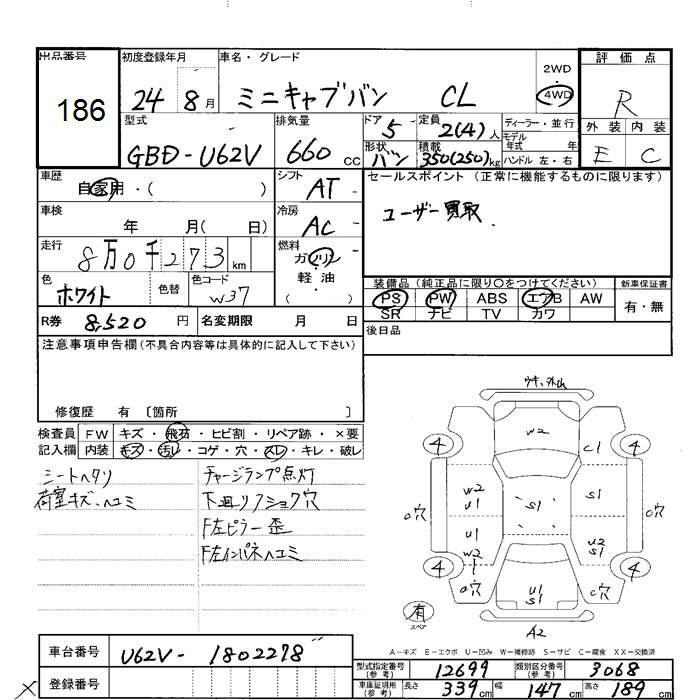 出品番号 186
初度登録年月 24 8月
車名・グレード ミニキャブバン CL
2WD
4WD
評価点 R
外装 内装
E C
型式 GBD-U62V
排気量 660 cc
ドア 5
定員 2(4)人
形状 バン
積載 350(250)kg
ディーラー・並行
モデル年式 年式
ハンドル 左・右
車歴 自家用・( )
シフト AT
車検 年 月( 日)
冷房 AC
走行 8万0千273 km
燃料 ガソリン・軽油 ( )
色 ホワイト 色替
色コード W37
R券 8,520 円
名変期限 月 日
セールスポイント (正常に機能するものに限ります)
ユーザー買取
装備品 (純正品に限り○をつけてください)
PS PW ABS エアB AW
SR ナビ TV カワ
新車保証書 有・無
後日品
注意事項申告欄(不具合内容等は具体的に記入して下さい)
修復歴 有 〔箇所 〕
検査員記入欄
FW キズ・飛石・ヒビ割・リペア跡・×要
内装 キズ・汚レ・コゲ・穴・スレ・キレ・破レ
シートヘタリ
荷室キズ、ヘコミ
チャージランプ点灯
下廻リフショク穴
F左ピラー歪
F左インパネヘコミ
W2
C1
4 4
○穴 W2 U1 S1 S1 ○穴
U1 U2 S1
W2
4 4
○穴 U1 S1 C穴
有
スペア
A2
A-キズ E-エクボ U-凹み W-補修跡 S-サビ C-腐食 XX-交換済
車台番号 U62V-1802278
登録番号
型式指定番号(参考) 12699
類別区分番号(参考) 3068
車庫証明用(参考) 長さ 339cm 幅 147cm 高さ 189cm